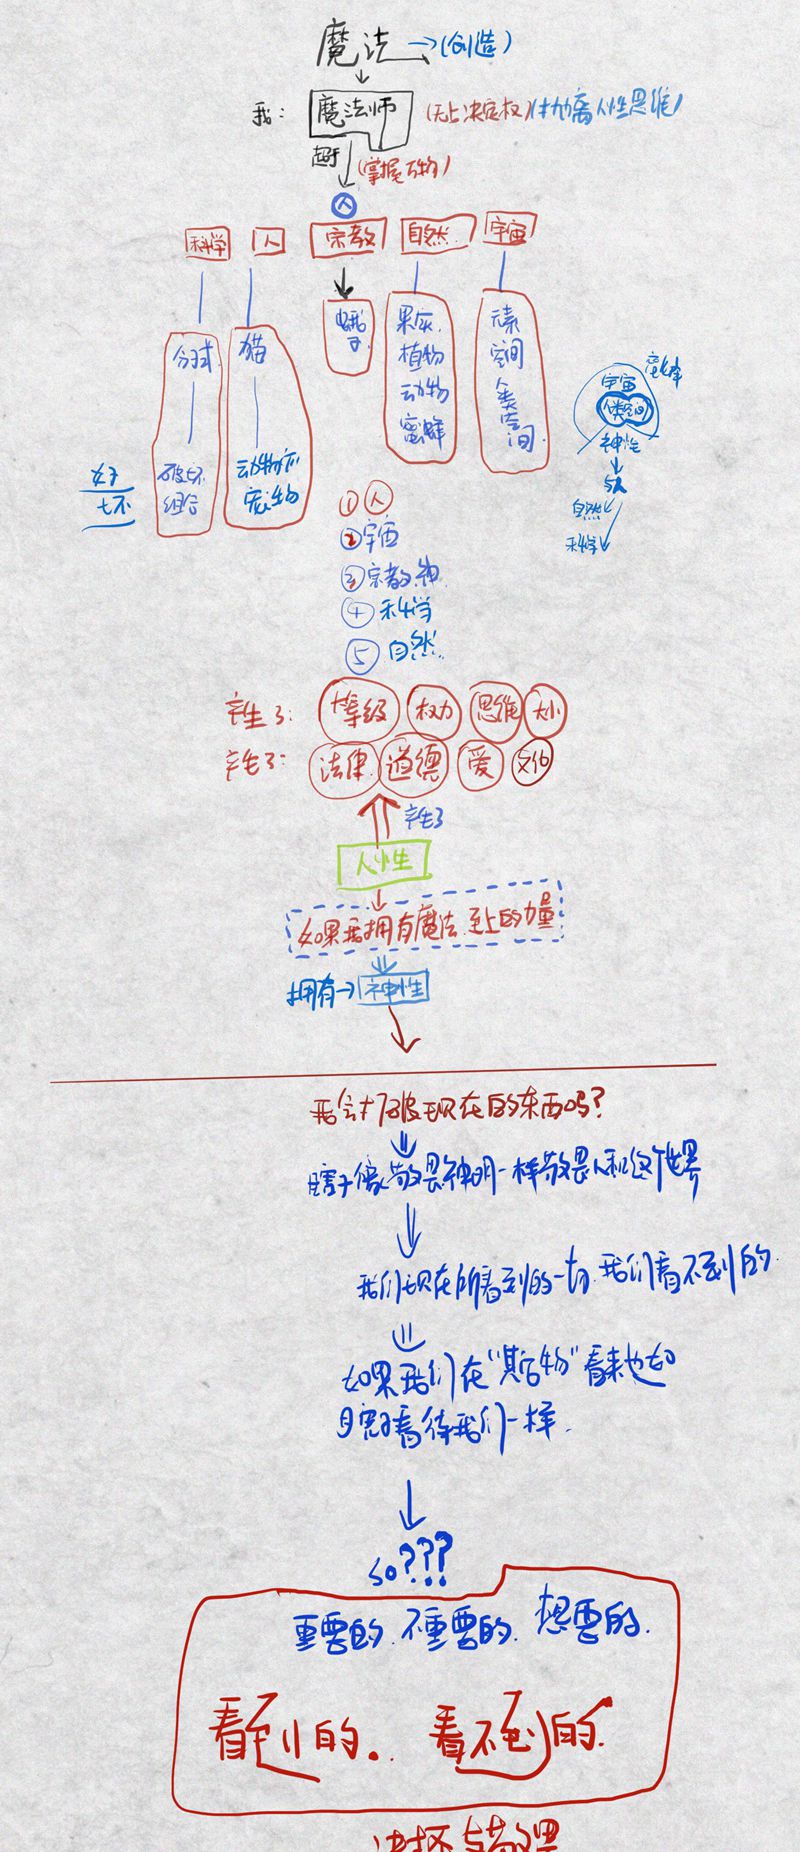 魔法→(创造)
我: 魔法师 (无上决定权)(抛离人性思维)
超于 (掌握万物)
人
科学 人 宗教 自然 宇宙
分子式
破坏
组合
猫
动物而
宠物
好
坏
果实
植物
动物
蜜蜂
元素
空间
人类空间
宇宙
人类空间
神性
人
自然
科学
①人
②宇宙
③宗教.神
④科学
⑤自然
产生了: 等级 权力 思维 大小
产生了: 法律 道德 爱 文化
产生了
人性
如果我拥有魔法.至上的力量
拥有→神性
我会打破现在的东西吗?
瞎子像敬畏神明一样敬畏人和这个世界
我们现在所看到的一切.我们看不到的
如果我们在“某后物”看来也如
瞎子看待我们一样.
so???
重要的.不重要的.想要的.
看到的.. 看不到的.